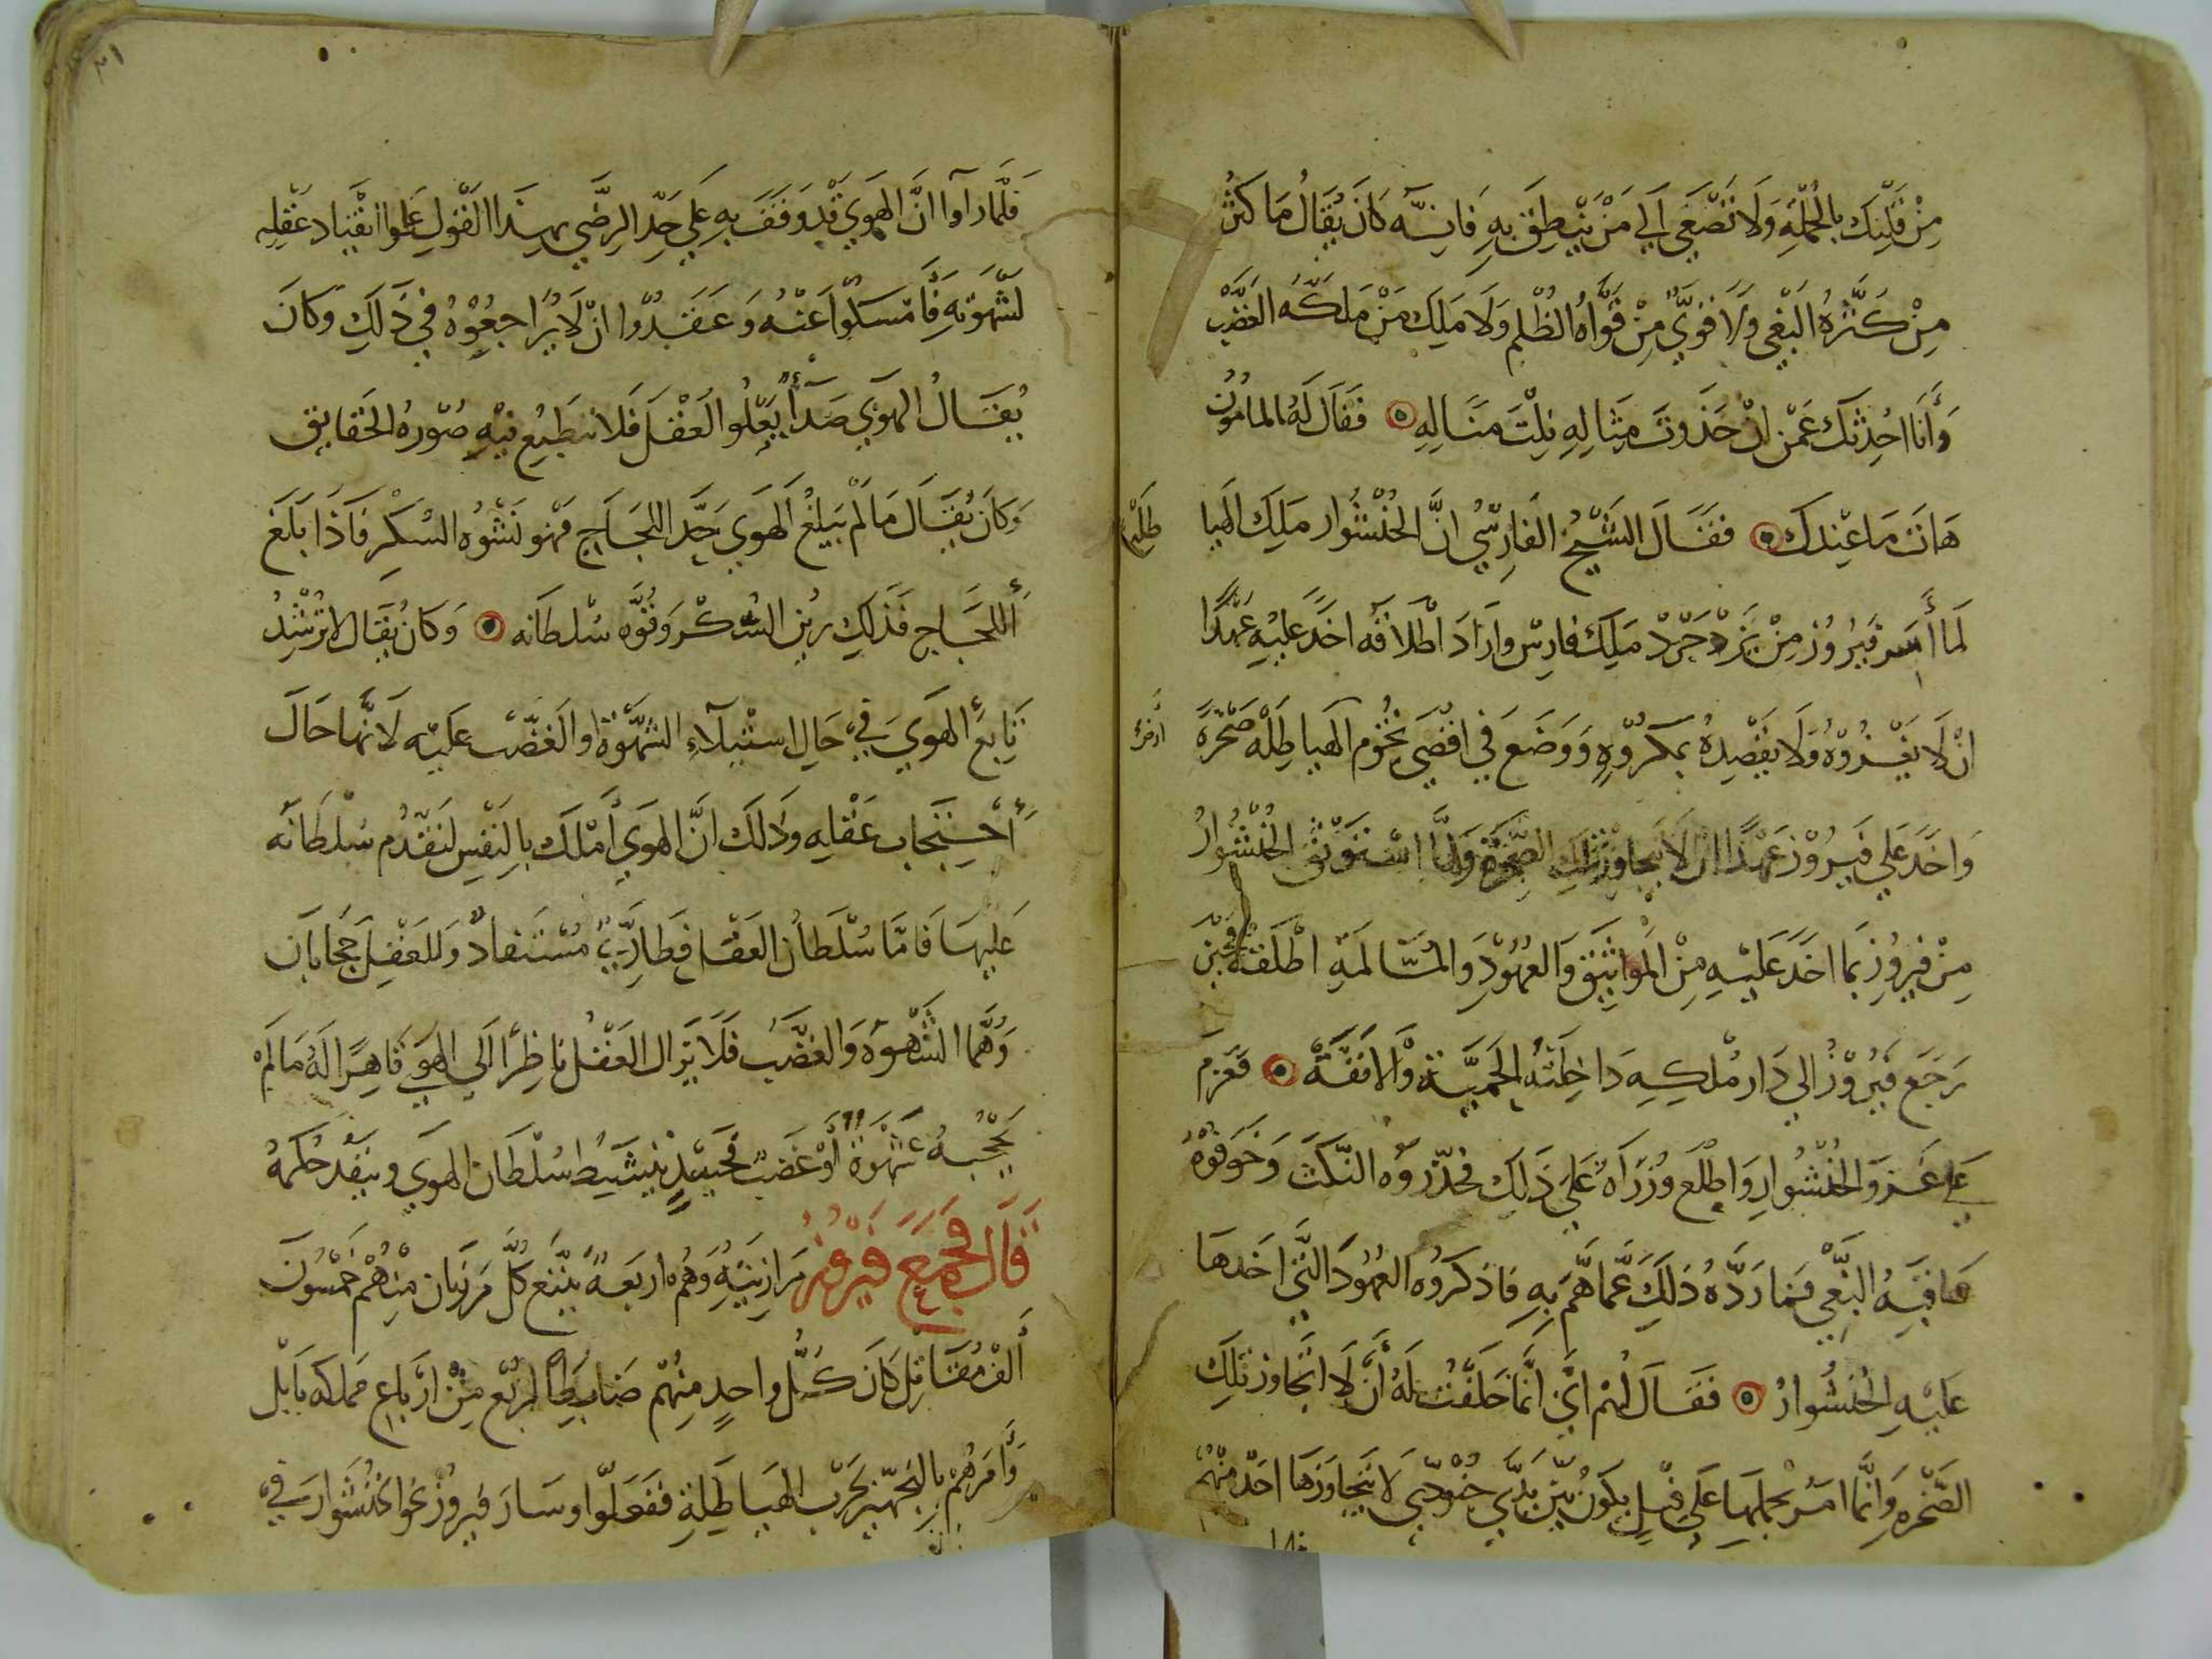 من قلبك بالجملة ولا تصغي الي من ينطق به فانه كان يقال ما كثر
من كثره البغي ولا قوي من قواه الظلم ولا ملك من ملكه الغضب
وأنا احدثك عمن ان حذوت مثاله نلت مناله فقال له المامون
هات ما عندك فقال الشيخ الفارسي ان الخنشوار ملك الهيا
طله
لما أسر فيروز من يزدجرد ملك فارس واراد اطلاقه اخذ عليه عهدا
ان لا يغزوه ولا يقصده بمكروه ووضع في اقصي تخوم الهياطلة صخرة
واخذ علي فيروز عهدا ان لا يتجاوز تلك الصخرة ولما استوثق الخنشوار
من فيروز بما اخذ عليه من المواثيق والعهود والمسالمة اطلقه فحين
رجع فيروز الي دار ملكه داخلته الحمية والانفة فعزم
علي غزو الخنشوار واطلع وزراه علي ذلك فحذروه النكث وخوفوه
عاقبة البغي فما رده ذلك عما هم به فاذكروه العهود التي اخذها
عليه الخنشوار فقال لهم اي انما حلفت له أن لا اتجاوز تلك
الصخره وانما امر بحملها علي فيل يكون بين يدي جنودي لا يتجاوزها احد منهم
٢١
فلما رآوا ان الهوي قد وقف به علي حد الرضي بهذا القول علموا انقياد عقله
لشهوته فأمسكوا عنه وعقدوا ان لا يراجعوه في ذلك وكان
يقال الهوي صدأ يعلوا العقل فلا تنطبع فيه صوره الحقايق
وكان يقال ما لم يبلغ الهوي حد اللجاج فهو نشوه السكر فاذا بلغ
أللجاج فذلك رين السكر وقوه سلطانه وكان يقال لا ترشد
تابع الهوي في حال استيلاء الشهوة او الغضب عليه لانها حال
أحتجاب عقله وذلك ان الهوي أملك بالنفس لتقدم سلطانه
عليها فاما سلطان العقل فطاري مستفاد وللعقل حجابان
وهما الشهوه والغضب فلا يزال العقل ناظرا الي الهوي قاهرا له ما لم
يحجبه شهوة أو غضب فحينيذ ينبسط سلطان الهوي وينفذ حكمه
قال فجمع فيروز مرازبته وهم اربعة يتبع كل مرزبان منهم خمسون
ألف مقاتل كان كل واحد منهم ضابطا لربع من ارباع مملكه بابل
وأمرهم بالتجهيز لحرب الهياطلة ففعلوا وسار فيروز نحو اخنشوار في